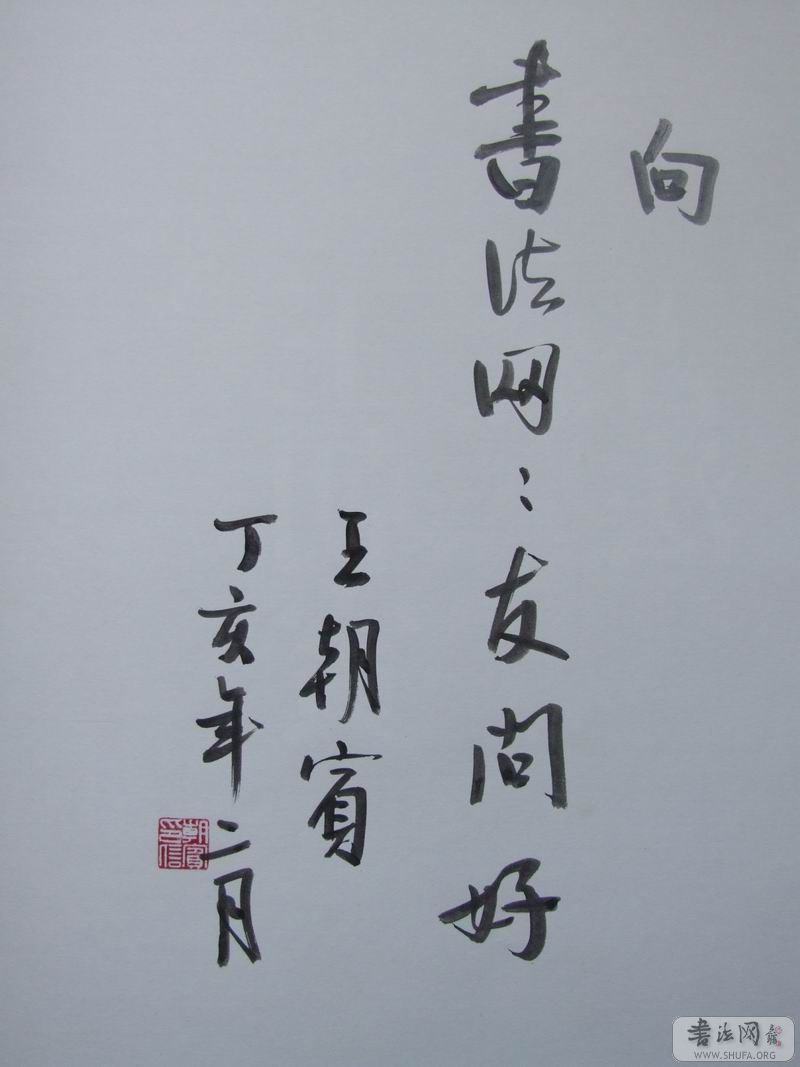 向
書法网〻友问好
王朝賓
丁亥年二月
朝賓印信
書法网
WWW.SHUFA.ORG